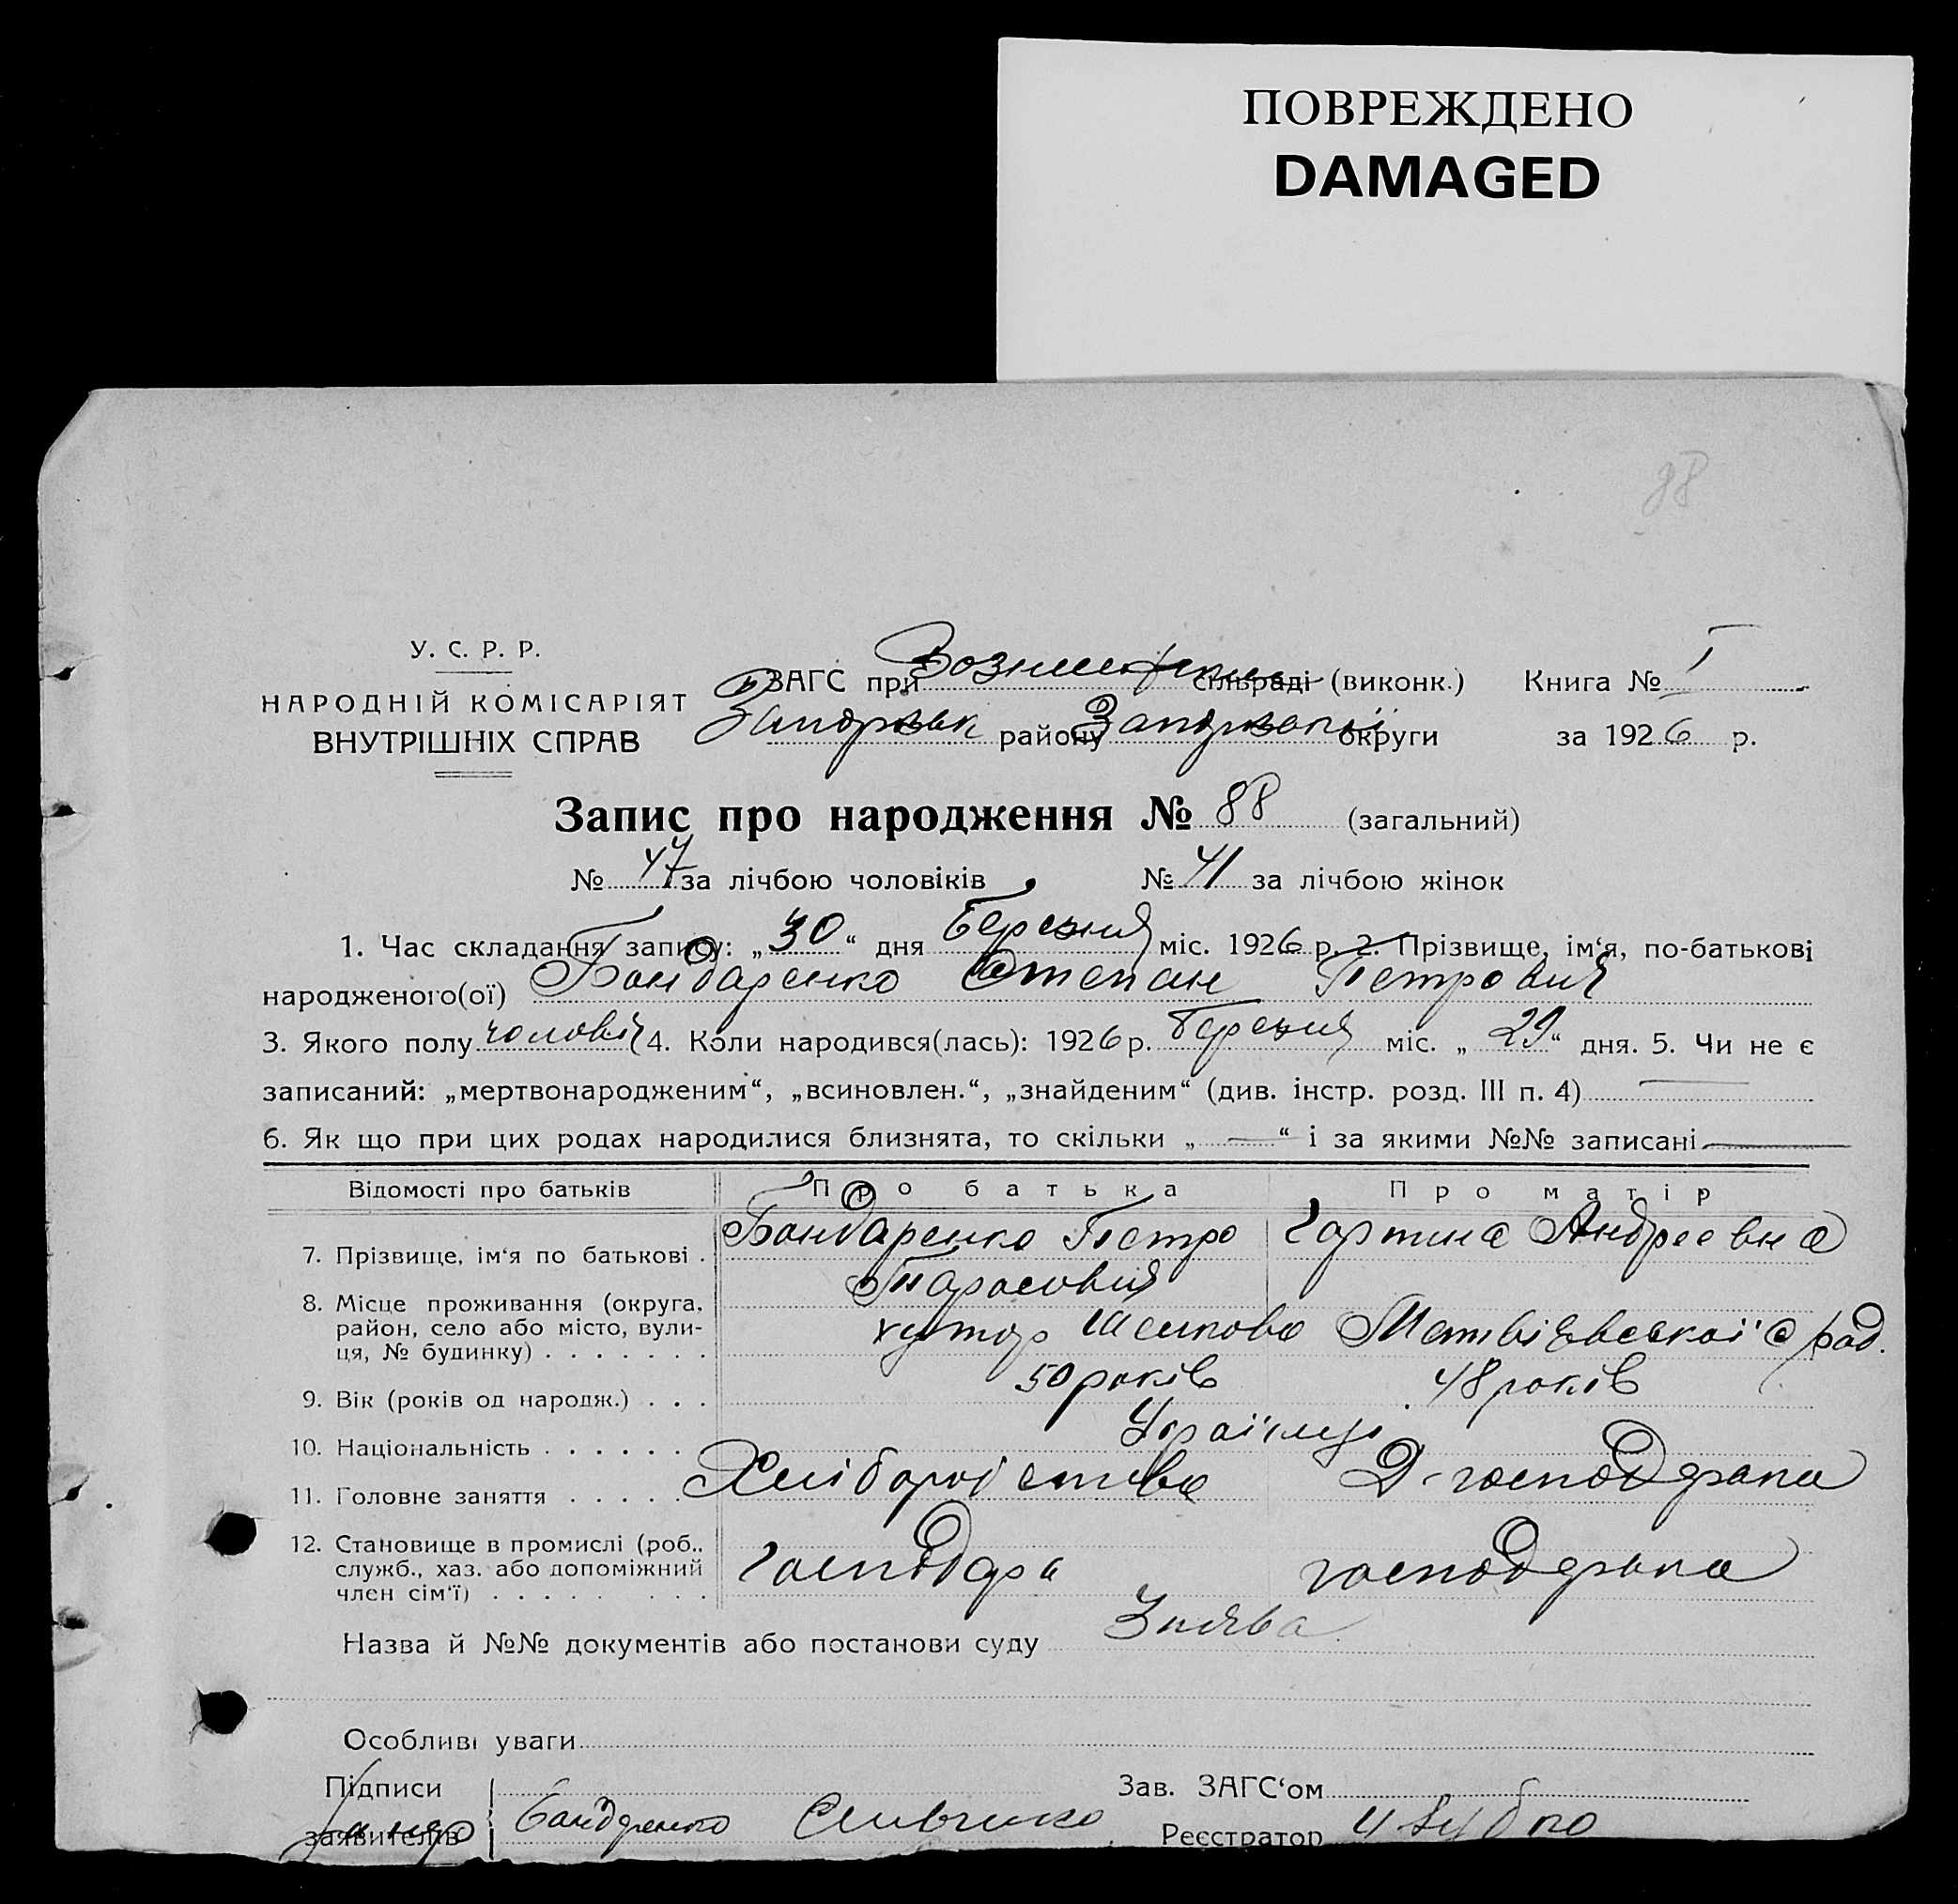 ПОВРЕЖДЕНО
DAMAGED
88
У. С. Р. Р.
НАРОДНІЙ КОМІСАРІЯТ
ВНУТРІШНІХ СПРАВ
ЗАГС при сільраді (виконк.) Книга № I
району округи за 1926 р.
Запис про народження № 88 (загальний)
№ 47 за лічбою чоловіків № 41 за лічбою жінок
1. Час складання запису: „30“ дня Березня міс. 1926 р. 2. Прізвище, ім‘я, по-батькові
народженого(ої) Бондаренко Степан Петрович
3. Якого полу чоловіч 4. Коли народився(лась): 1926 р. Березня міс. „29“ дня. 5. Чи не є
записаний: „мертвонародженим“, „всиновлен.“, „знайденим“ (див. інстр. розд. III п. 4) —
6. Як що при цих родах народилися близнята, то скільки „—“ і за якими №№ записані —
Відомості про батьків Про батька Про матір
7. Прізвище, ім‘я по батькові . Бондаренко Петро Андреевна
Тарасович
8. Місце проживання (округа, район, село або місто, вулиця, № будинку) . . . . . . . хутор Матвіевської с/рад.
9. Вік (років од народж.) . . . 50 років 48 років
10. Національність . . . . . . Українці
11. Головне заняття . . . . . Хліборобство Д-господарка
12. Становище в промислі (роб., служб., хаз. або допоміжний член сім‘ї) . . . . . . . . господарь господарка
Назва й №№ документів або постанови суду Заява
Особливі уваги
Підписи Зав. ЗАГС‘ом
заявителів Бондаренко Реєстратор